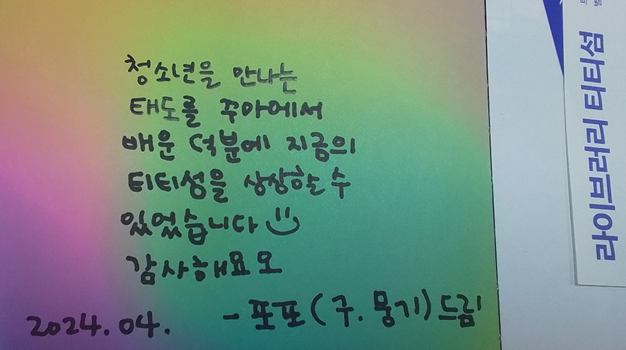 청소년을 만나는
태도를 꾸아에서
배운 덕분에 지금의
티티섬을 상상할 수
있었습니다
감사해요오
2024.04. - 포포(구.뭉기)드림!
라이브러리 티티섬